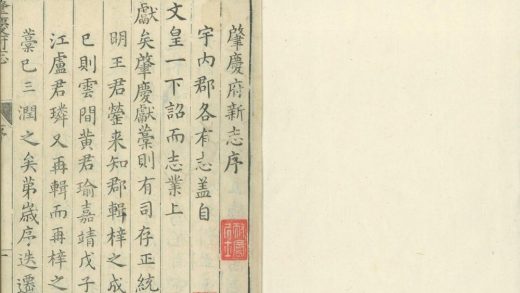 肇慶府新志序
宇內郡各有志蓋自
文皇一下詔而志業上
獻矣肇慶獻藁則有司存正統
明王君鎣来知郡輯梓之成
已則雲間黄君瑜嘉靖戊子
江盧君璘又再輯而再梓之
藁已三潤之矣苐歲序迭遷
序
一